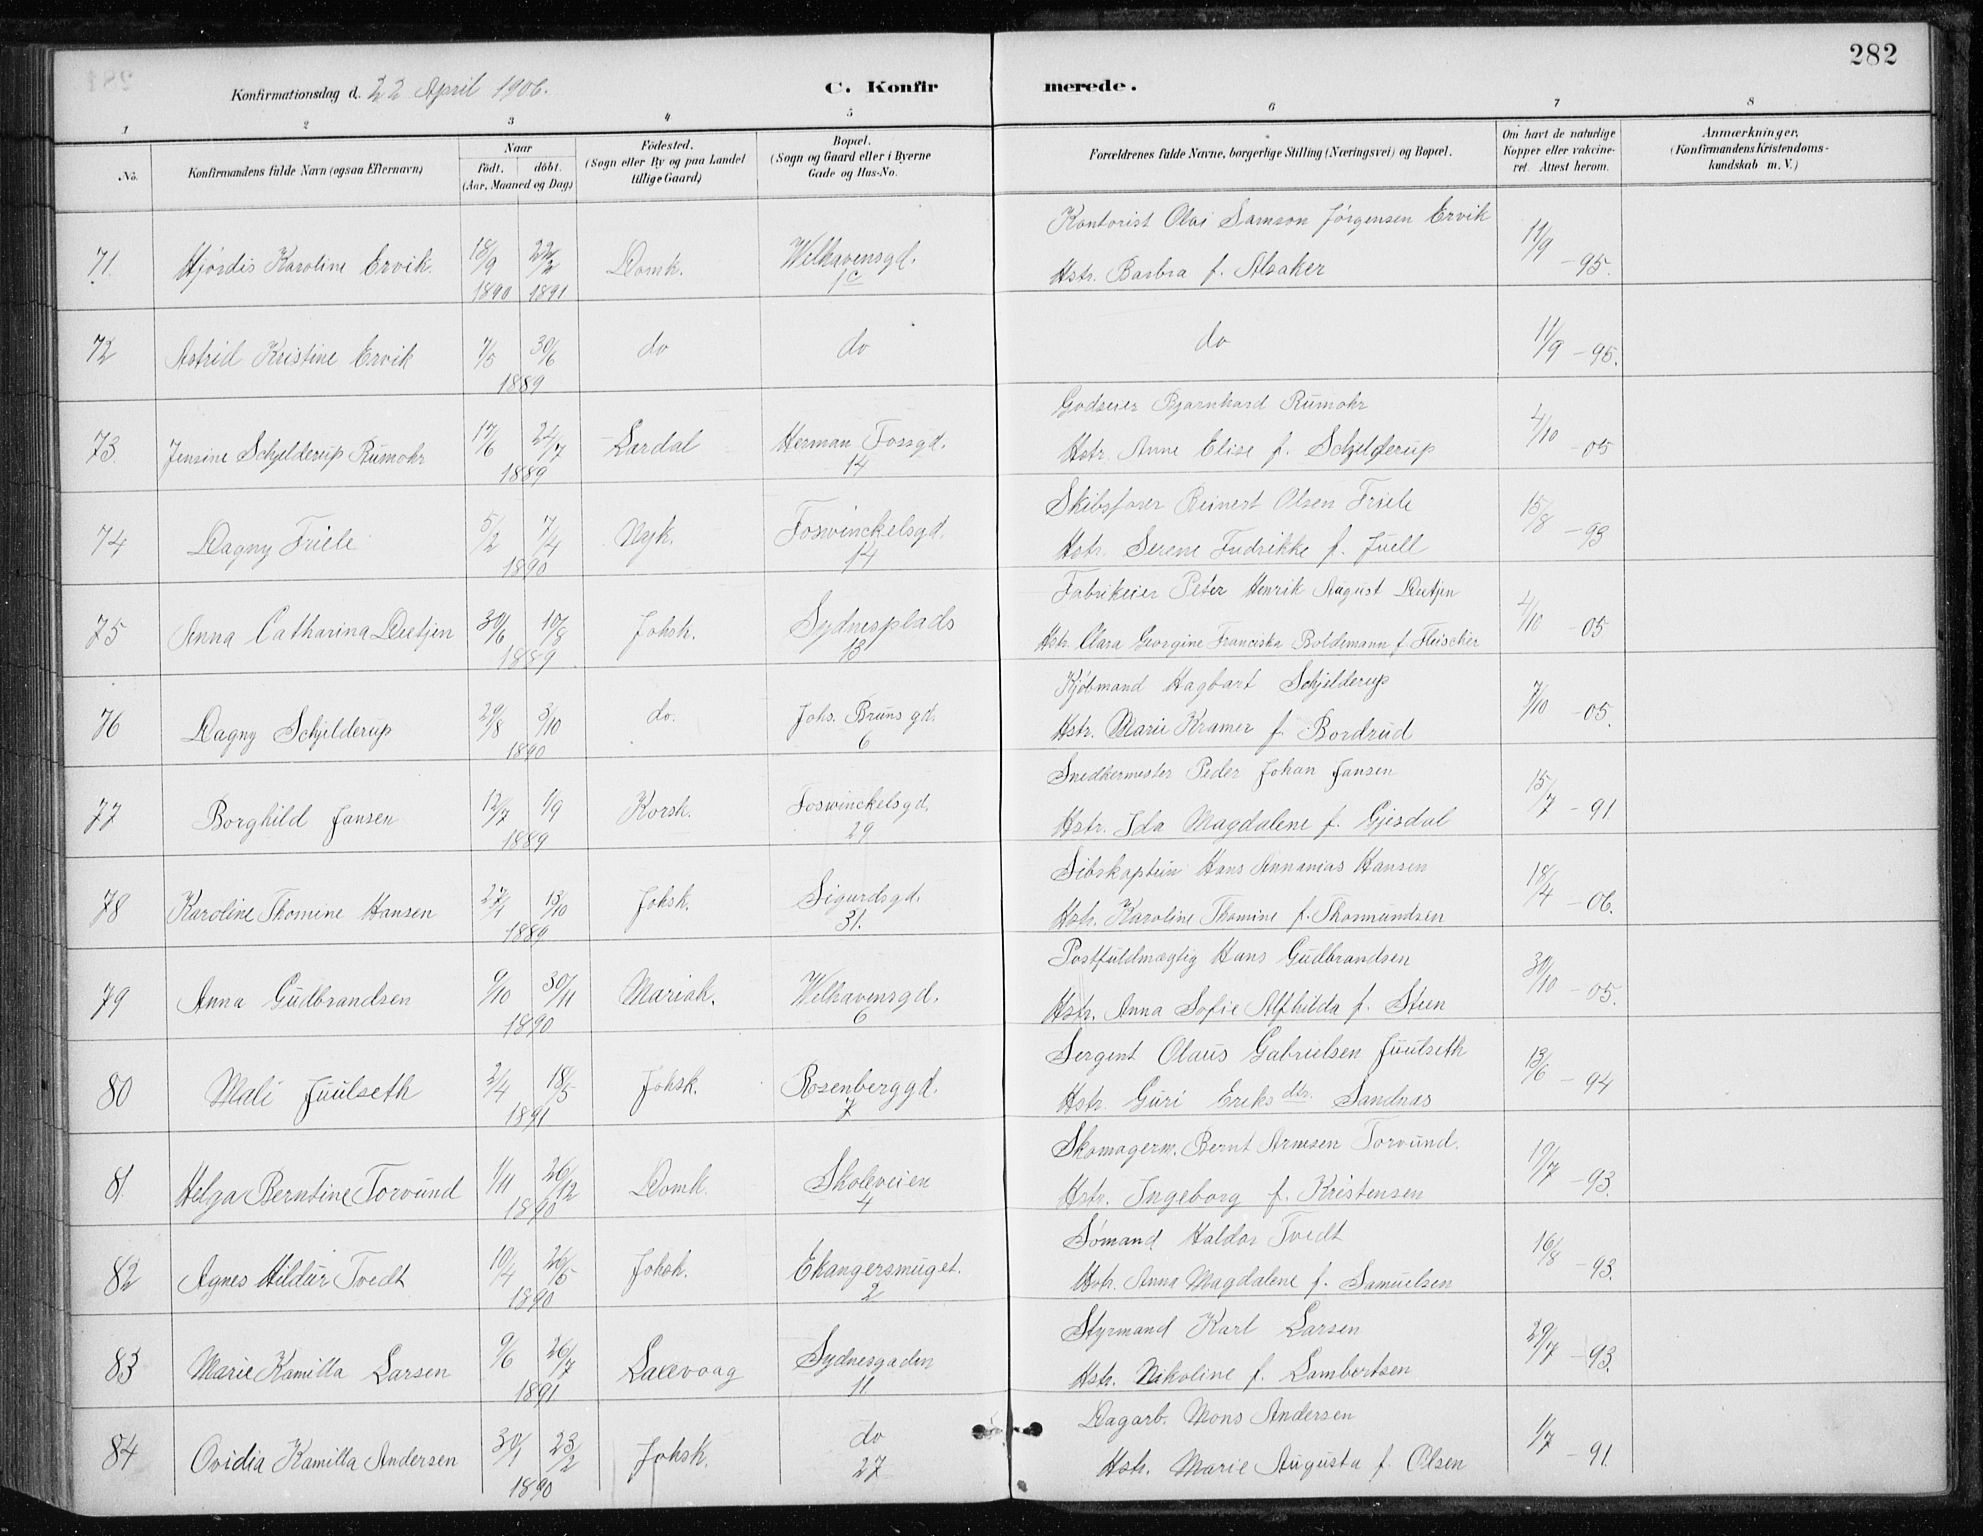 282
Konfirmationsdag d. 22 April 1906.
C. Konfir merede.
1 2 3 4 5 6 7 8
No.
Konfirmandens fulde Navn (ogsaa Efternavn)
Naar
födt. döbt.
(Aar, Maaned og Dag)
Födested.
(Sogn eller By og paa Landet
tillige Gaard)
Bopæl.
(Sogn og Gaard eller i Byerne
Gade og Hus-No.
Forældrenes fulde Navne, borgerlige Stilling (Næringsvei) og Bopæl.
Om havt de naturlige
Kopper eller vakcine-
ret. Attest herom.
Anmærkninger.
(Konfirmandens Kristendoms-
kundskab m. V.)
Kontorist Olai Samson Jörgensen Ervik
71. Hjördis Karoline Ervik. 18/9 22/2 Domk. Welhavensgd. 11/9 - 95.
1890 1891 1c Hstr. Barbra f. Alsaker
72 Astrid Kristine Ervik 7/5 30/6 do do do 11/9 - 95.
1889
Godseier Bjarnhard Rumohr
73. Jensine Schjelderup Rumohr 17/6 24/7 Lærdal Herman Fossgd. 4/10 - 05
1889 14 Hstr. Anne Elise f. Schjelderup
Skibsfører Reinert Olsen Friele
74 Dagny Friele 5/2 7/4 Nyk. Foswinckelsgd. 15/8 - 93
1890 14 Hstr. Serene Fredrikke f. Juell
Fabrikeier Peter Henrik August Dietjen
75 Anna Catharina Dietjen 30/6 10/8 Johsk. Sydnesplads 4/10 - 05
1889 13 Hstr. Clara Georgine Franciska Boldemann f. Fleischer
Kjöbmand Hagbart Schjelderup
76 Dagny Schjelderup 29/8 3/10 do. Johs. Bruns gd. 7/10 - 05.
1890 6 Hstr. Marie Kramer f. Bordrud
Snedkermester Peder Johan Jansen
77 Borghild Jansen 12/7 1/9 Korsk. Foswinckelsgd. 15/7 - 91
1889 29 Hstr. Ida Magdalene f. Gjesdal
Sibskaptein Hans Annanias Hansen
78 Karoline Thomine Hansen 27/1 13/10 Johsk. Sigurdsgd. 18/4 - 06.
1889 31. Hstr. Karoline Thomine f. Thormundsen
Postfuldmægtig Hans Gudbrandsen
79 Anna Gudbrandsen 9/10 30/11 Mariak. Welhavensgd. 30/10 - 05.
1890 6 Hstr. Anna Sofie Alfhilda f. Steen
Sergent Olaus Gabrielsen Juulseth
80 Mali Juulseth 2/4 18/5 Johsk. Rosenberggd. 13/6 - 94
1891 7 Hstr. Guri Ereksdtr. Sandnas
Skomagerm. Bernt Arnesen Torvund.
81. Helga Berntine Torvund 1/11 26/12 Domk. Skoleveien 19/7 - 93.
1890 4 Hstr. Ingeborg f. Kristensen
Sömand Haldor Tvedt
82 Agnes Hildur Tvedt 10/4 26/5 Johsk. Ekangersmuget. 16/8 - 93.
1890 2 Hstr. Anna Magdalene f. Samuelsen
Styrmand Karl Larsen
83 Marie Kamilla Larsen 9/6 26/7 Laxevaag Sydnesgaden 29/7 - 93.
1891 11 Hstr. Nikoline f. Lambertsen
Dagarb. Mons Andersen
84 Ovidia Kamilla Andersen 30/1 23/2 Johsk. do 1/7 - 91.
1890 27 Hstr. Marie Augusta f. Olsen